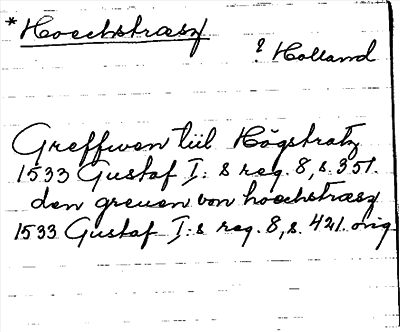 * Hoechstrasz
? Holland
Greffwen tiil Högstratz
1533 Gustaf I:s reg. 8, s. 351.
den greuen von hoechstrasz
1533 Gustaf I:s reg. 8, s. 421. orig.